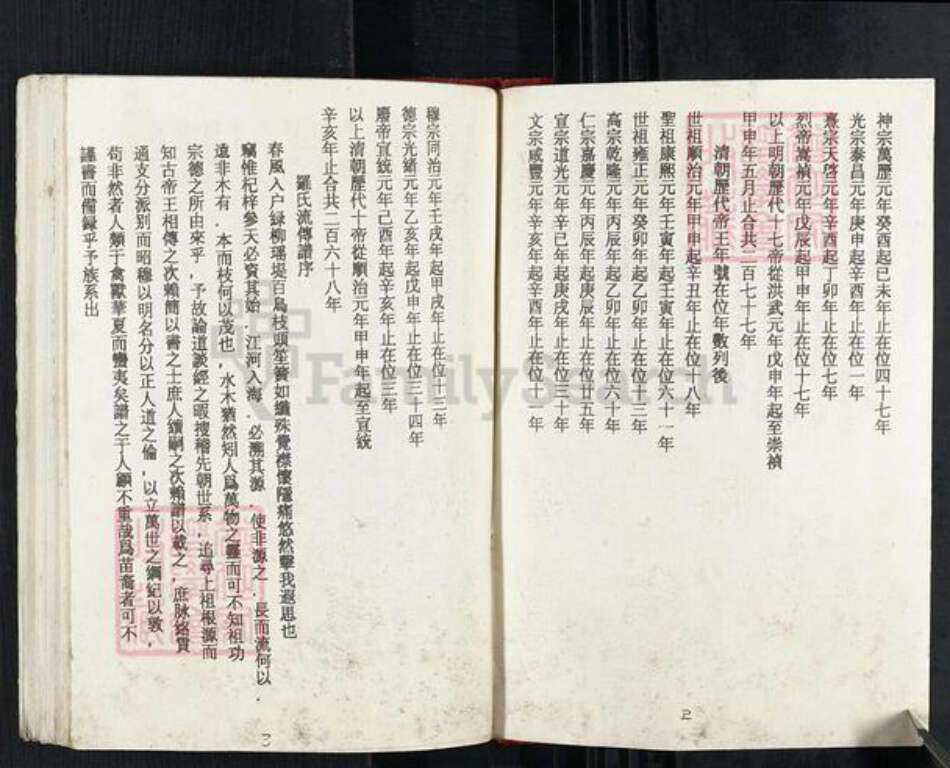 神宗萬歷元年癸酉起己未年止在位四十七年
光宗泰昌元年庚申起辛酉年止在位一年
熹宗天啓元年辛酉起丁卯年止在位七年
烈帝嵩禎元年戊辰起甲申年止在位十七年
以上明朝歷代十七帝從洪武元年戊申年起至崇禎
甲申年五月止合共二百七十七年
清朝歷代帝王年號在位年數列後
世祖順治元年甲申起辛丑年止在位十八年
聖祖康熙元年壬寅年起壬寅年止在位六十一年
世祖雍正元年癸卯年起乙卯年止在位十三年
高宗乾隆元年丙辰年起乙卯年止在位六十年
仁宗嘉慶元年丙辰年起庚辰年止在位廿五年
宣宗道光元年辛巳年起庚戌年止在位三十年
文宗咸豐元年辛亥年起辛酉年止在位十一年
2
穆宗同治元年壬戌年起甲戌年止在位十三年
德宗光緒元年乙亥年起戊申年止在位三十四年
廢帝宣統元年己酉年起辛亥年止在位三年
以上清朝歷代十帝從順治元年甲申年起至宣統
辛亥年止合共二百六十八年
羅氏流傳譜序
春風入户緑柳瑤堤百鳥枝頭笙簧如織殊覺襟懷隱痛悠然擊我遐思也
竊惟杞梓參天必資其始．江河入海．必溯其源．使非源之．長而流何以．
遠非木有．本而枝何以茂也，水木猶然矧人爲萬物之靈而可不知祖功
宗德之所由來乎，予故論道談經之暇搜稽先朝世系，追尋上祖根源而
知古帝王相傳之次賴簡以書之士庶人續嗣之次賴譜以載之，庶脉絡貫
通支分派別而昭穆以明名分以正人道之倫，以立萬世之綱紀以敦，
苟非然者人類于禽獸華夏而蠻夷矣譜之于人顧不重哉爲苗裔者可不
謹書而備録乎予族系出
3
FamilySearch